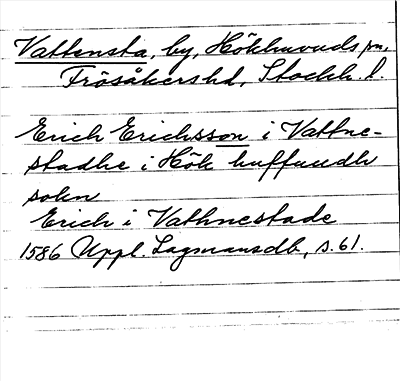 Vattensta, by, Hökhuvuds sn,
Frösåkers hd, Stockh. l.
Erich Ericksson i Vattne-
stadhe i Hök huffuudh
sokn
Erich i Vathnestade
1586 Uppl. Lagmansdb, s. 61.